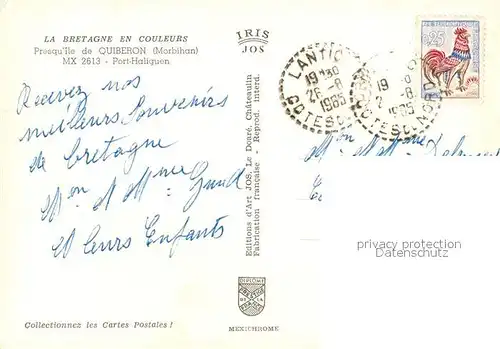 LA BRETAGNE EN COULEURS
Presqu'île de QUIBERON (Morbihan)
MX 2613 - Port-Haliguen
IRIS
JOS
LANTIC
19H30
26-8
1965
COTES DU NORD
19
8
1965
COTES DU NORD
0,25
Recevez nos
meilleurs souvenirs
de bretagne
Mon et Mme
et leurs Enfants
Mon et Mme
Editions d'Art JOS, Le Doaré, Châteaulin
Fabrication française - Reprod. Interd.
privacy protection
DIPLOME
PRESTIGE
DE LA
FRANCE
MEXICHROME
Collectionnez les Cartes Postales !